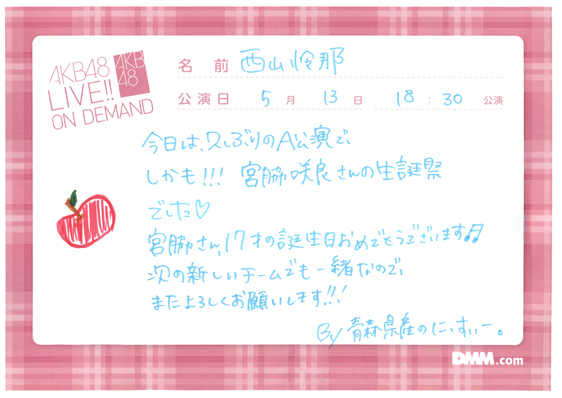 AKB48
LIVE!!
ON DEMAND
AKB
48
名前 西山怜那
公演日 5月13日 18:30 公演
今日は、久しぶりのA公演で、
しかも!!! 宮脇咲良さんの生誕祭
でした♡
宮脇さん、17才の誕生日おめでとうございます♫
次の新しいチームでも一緒なので、
またよろしくお願いします!!!
By 青森県産のにっすぃー。
DMM.com